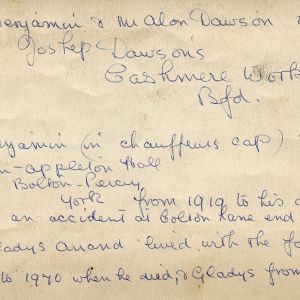 enjamin & Mr Alon Dawson
Joshep Dawson's
Cashmere Work
Bfd.
enjamin (in chauffeurs cap)
n-appleton Hall
Bolton-Percy
York from 1919 to his
an accident at Colton Lane end
ladys Anand lived with the fa
to 1970 when he died, & Gladys from